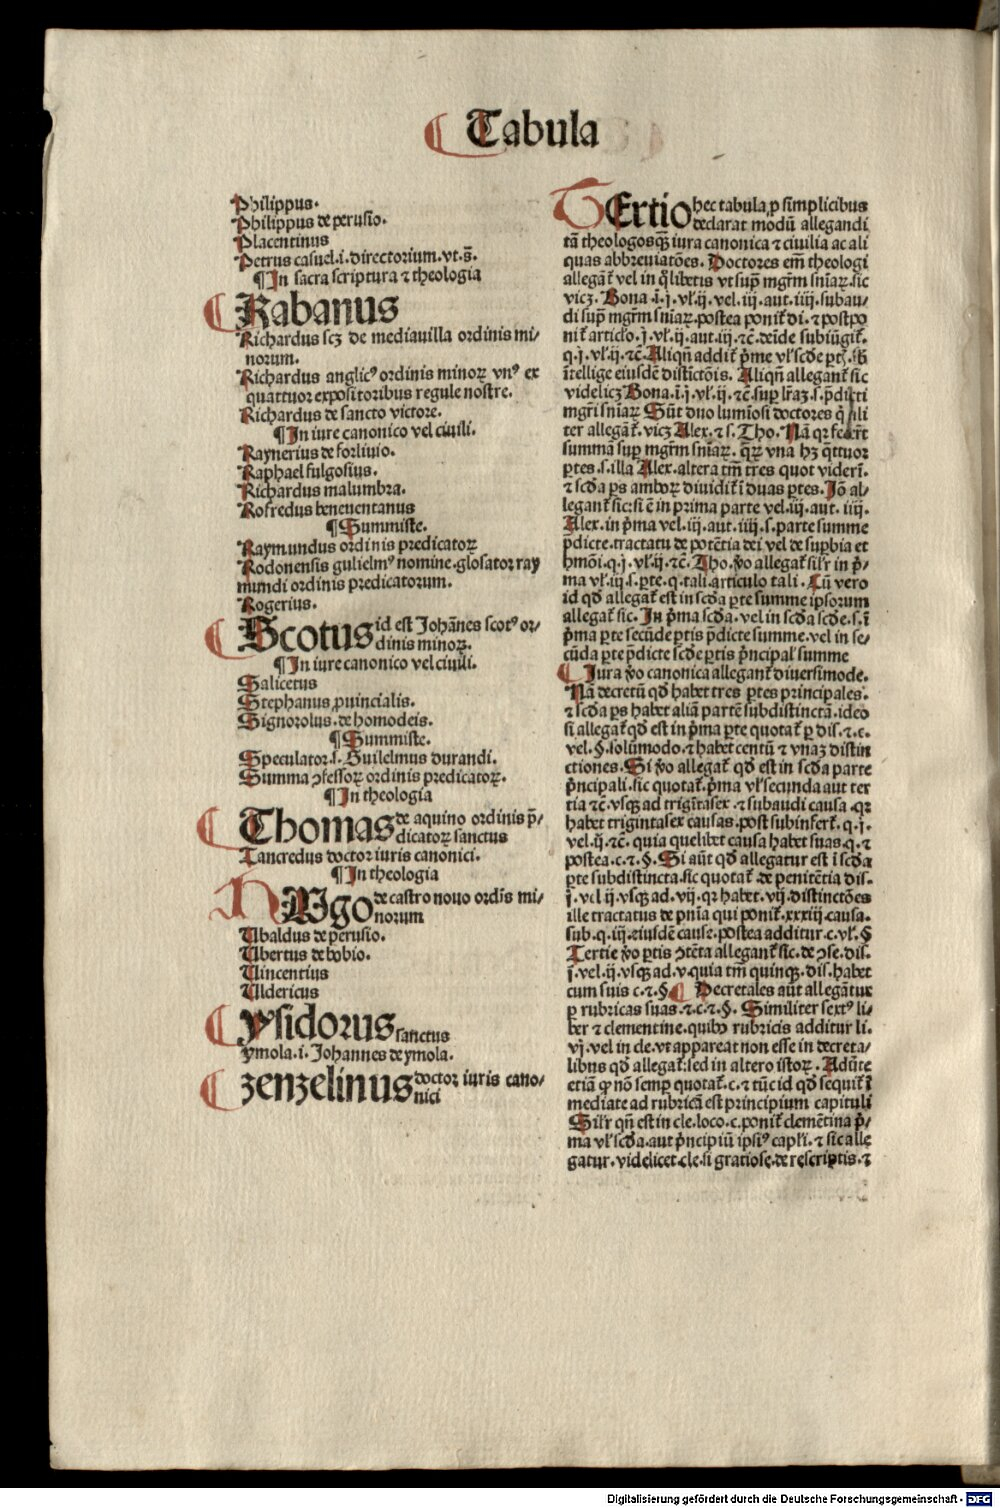 Tabula
Philippus.
Philippus de perusio.
Placentinus
Petrus casuel.i.directorium.vt.s̄.
¶In sacra scriptura ⁊ theologia
Rabanus
Richardus scꝫ de mediauilla ordinis mi⸗
norum.
Richardus anglicꝰ ordinis minoꝝ vnꝰ ex
quattuor expositoribus regule nostre.
Richardus de sancto victore.
¶In iure canonico vel ciuili.
Raynerius de forliuio.
Raphael fulgosius.
Richardus malumbra.
Rofredus beneuentanus
¶Summiste.
Raymundus ordinis predicatoꝝ
Rodonensis gulielmꝰ nomine.glosator ray
mundi ordinis predicatorum.
Rogerius.
Scotus id est Johānes scotꝰ or⸗
dinis minoꝝ.
¶In iure canonico vel ciuili.
Salicetus
Stephanus ꝓuincialis.
Signorolus.de homodeis.
¶Summiste.
Speculator.s.Guilelmus durandi.
Summa ꝯfessoꝝ ordinis predicatoꝝ.
¶In theologia
Thomas de aquino ordinis p̄⸗
dicatoꝝ sanctus
Tancredus doctor iuris canonici.
¶In theologia
VUgo de castro nouo ordīs mi⸗
norum
Ubaldus de perusio.
Ubertus de bobio.
Uincentius
Uldericus
Ysidorus sanctus
ymola.i.Johannes de ymola.
Zenzelinus doctor iuris cano⸗
nici
TErtio hec tabula ꝓ simplicibus
declarat modū allegandi
tā theologos qꝫ iura canonica ⁊ ciuilia ac ali
quas abbreuiatōes. Doctores em̄ theologi
allegāt̄ vel in q̄libetis vt sup̄ mgr̄m sn̄iaꝝ.sic
vicꝫ. Bona.i.j.vl̄.ij.vel.iij.aut.iiij.subau⸗
di sup̄ mgr̄m sn̄iaꝝ.postea ponit̄ di.⁊ postpo
nit̄ articlo.j.vl̄.ij.aut.iij.⁊c̄.deīde subiūgit̄.
q.j.vl̄.ij.⁊c̄. Aliqn̄ addit̄ p̄me vl̄ scd̄e
ītellige eiusdē distīctōis. Aliqn̄ allegant̄ sic
videlicꝫ Bona.i.j.vl̄.ij.⁊c̄.sup̄ lr̄aꝫ.s.p̄dicti
mgr̄i sn̄iaꝝ Sūt duo lumīosi doctores q̄ ali
ter allegāt̄.vicꝫ Alex.⁊ s. Tho. Nā qꝛ fecer̄t
summā sup̄ mgr̄m sn̄iaꝝ. q̄ꝝ vna hꝫ q̄ttuor
ꝑtes.s.illa Alex.altera tm̄ tres quot viderī.
⁊ scd̄a ꝑs amboꝝ diuidit̄ ī duas ꝑtes. Jō al⸗
legant̄ sic:si ē in prima parte vel.iij.aut.iiij.
Alex.in p̄ma vel.iij.aut.iiij.s.parte summe
p̄dicte.tractatu de potētia dei vel de suꝑbia et
hmōi.q.j.vl̄.ij.⁊c̄. Tho. v̄o allegat̄ sil̄r in p̄⸗
ma vl̄.iij.s.ꝑte.q.tali.articulo tali. Cū vero
id qd̄ allegat̄ est in scd̄a ꝑte summe ipsorum
allegat̄ sic. In p̄ma scd̄a.vel in scd̄a scd̄e.s.ī
p̄ma ꝑte secūde ꝑtis p̄dicte summe.vel in se⸗
cūda ꝑte p̄dicte scd̄e ꝑtis p̄ncipal̄ summe
Jura v̄o canonica allegant̄ diuersimode.
Nā decretū qd̄ habet tres ꝑtes principales.
⁊ scd̄a ꝑs habet aliā partē subdistinctā.ideo
si allegat̄ qd̄ est in p̄ma ꝑte quotat̄ ꝑ dis.⁊.c.
vel.§.solūmodo.⁊ habet centū ⁊ vnaꝫ distin
ctiones. Si v̄o allegat̄ qd̄ est in scd̄a parte
p̄ncipali.sic quotat̄.p̄ma vl̄ secunda aut ter
tia ⁊c̄.vsqꝫ ad trigītasex.⁊ subaudi causa.qꝛ
habet trigintasex causas.post subinfert̄.q.j.
vel.ij.⁊c̄. quia quelibet causa habet suas.q.⁊
postea.c.⁊.§. Si aūt qd̄ allegatur est ī scd̄a
ꝑte subdistincta.sic quotat̄.de penitētia dis.
j.vel ij.vsqꝫ ad.vij.qꝛ habet.vij.distinctōes
ille tractatus de pn̄ia qui ponit̄.xxxiij.causa.
sub.q.iij.eiusdē cause.postea additur.c.vl̄.§
Tertie v̄o ꝑtis ꝯtēta allegant̄ sic.de ꝯse.dis.
j.vel.ij.vsqꝫ ad.v.quia tm̄ quinqꝫ.dis.habet
cum suis c.⁊.§ Decretales aūt allegātur
ꝑ rubricas suas.⁊.c.⁊.§. Similiter sextꝰ li⸗
ber ⁊ clementine.quibꝰ rubricis additur li.
vj.vel in cle.vt appareat non esse in decreta⸗
libus qd̄ allegat̄:sed in altero istoꝝ. Adūte
etiā ꝙ nō semꝑ quotat̄.c.⁊ tūc id qd̄ sequit̄ ī
mediate ad rubricā est principium capituli
Sil̄r qn̄ est in cle.loco.c.ponit̄ clemētina p̄⸗
ma vl̄ scd̄a.aut p̄ncipiū ipsiꝰ capl̄i.⁊ sic alle
gatur.videlicet.cle.si gratiose.de rescriptis.⁊
Digitalisierung gefördert durch die Deutsche Forschungsgemeinschaft - DFG